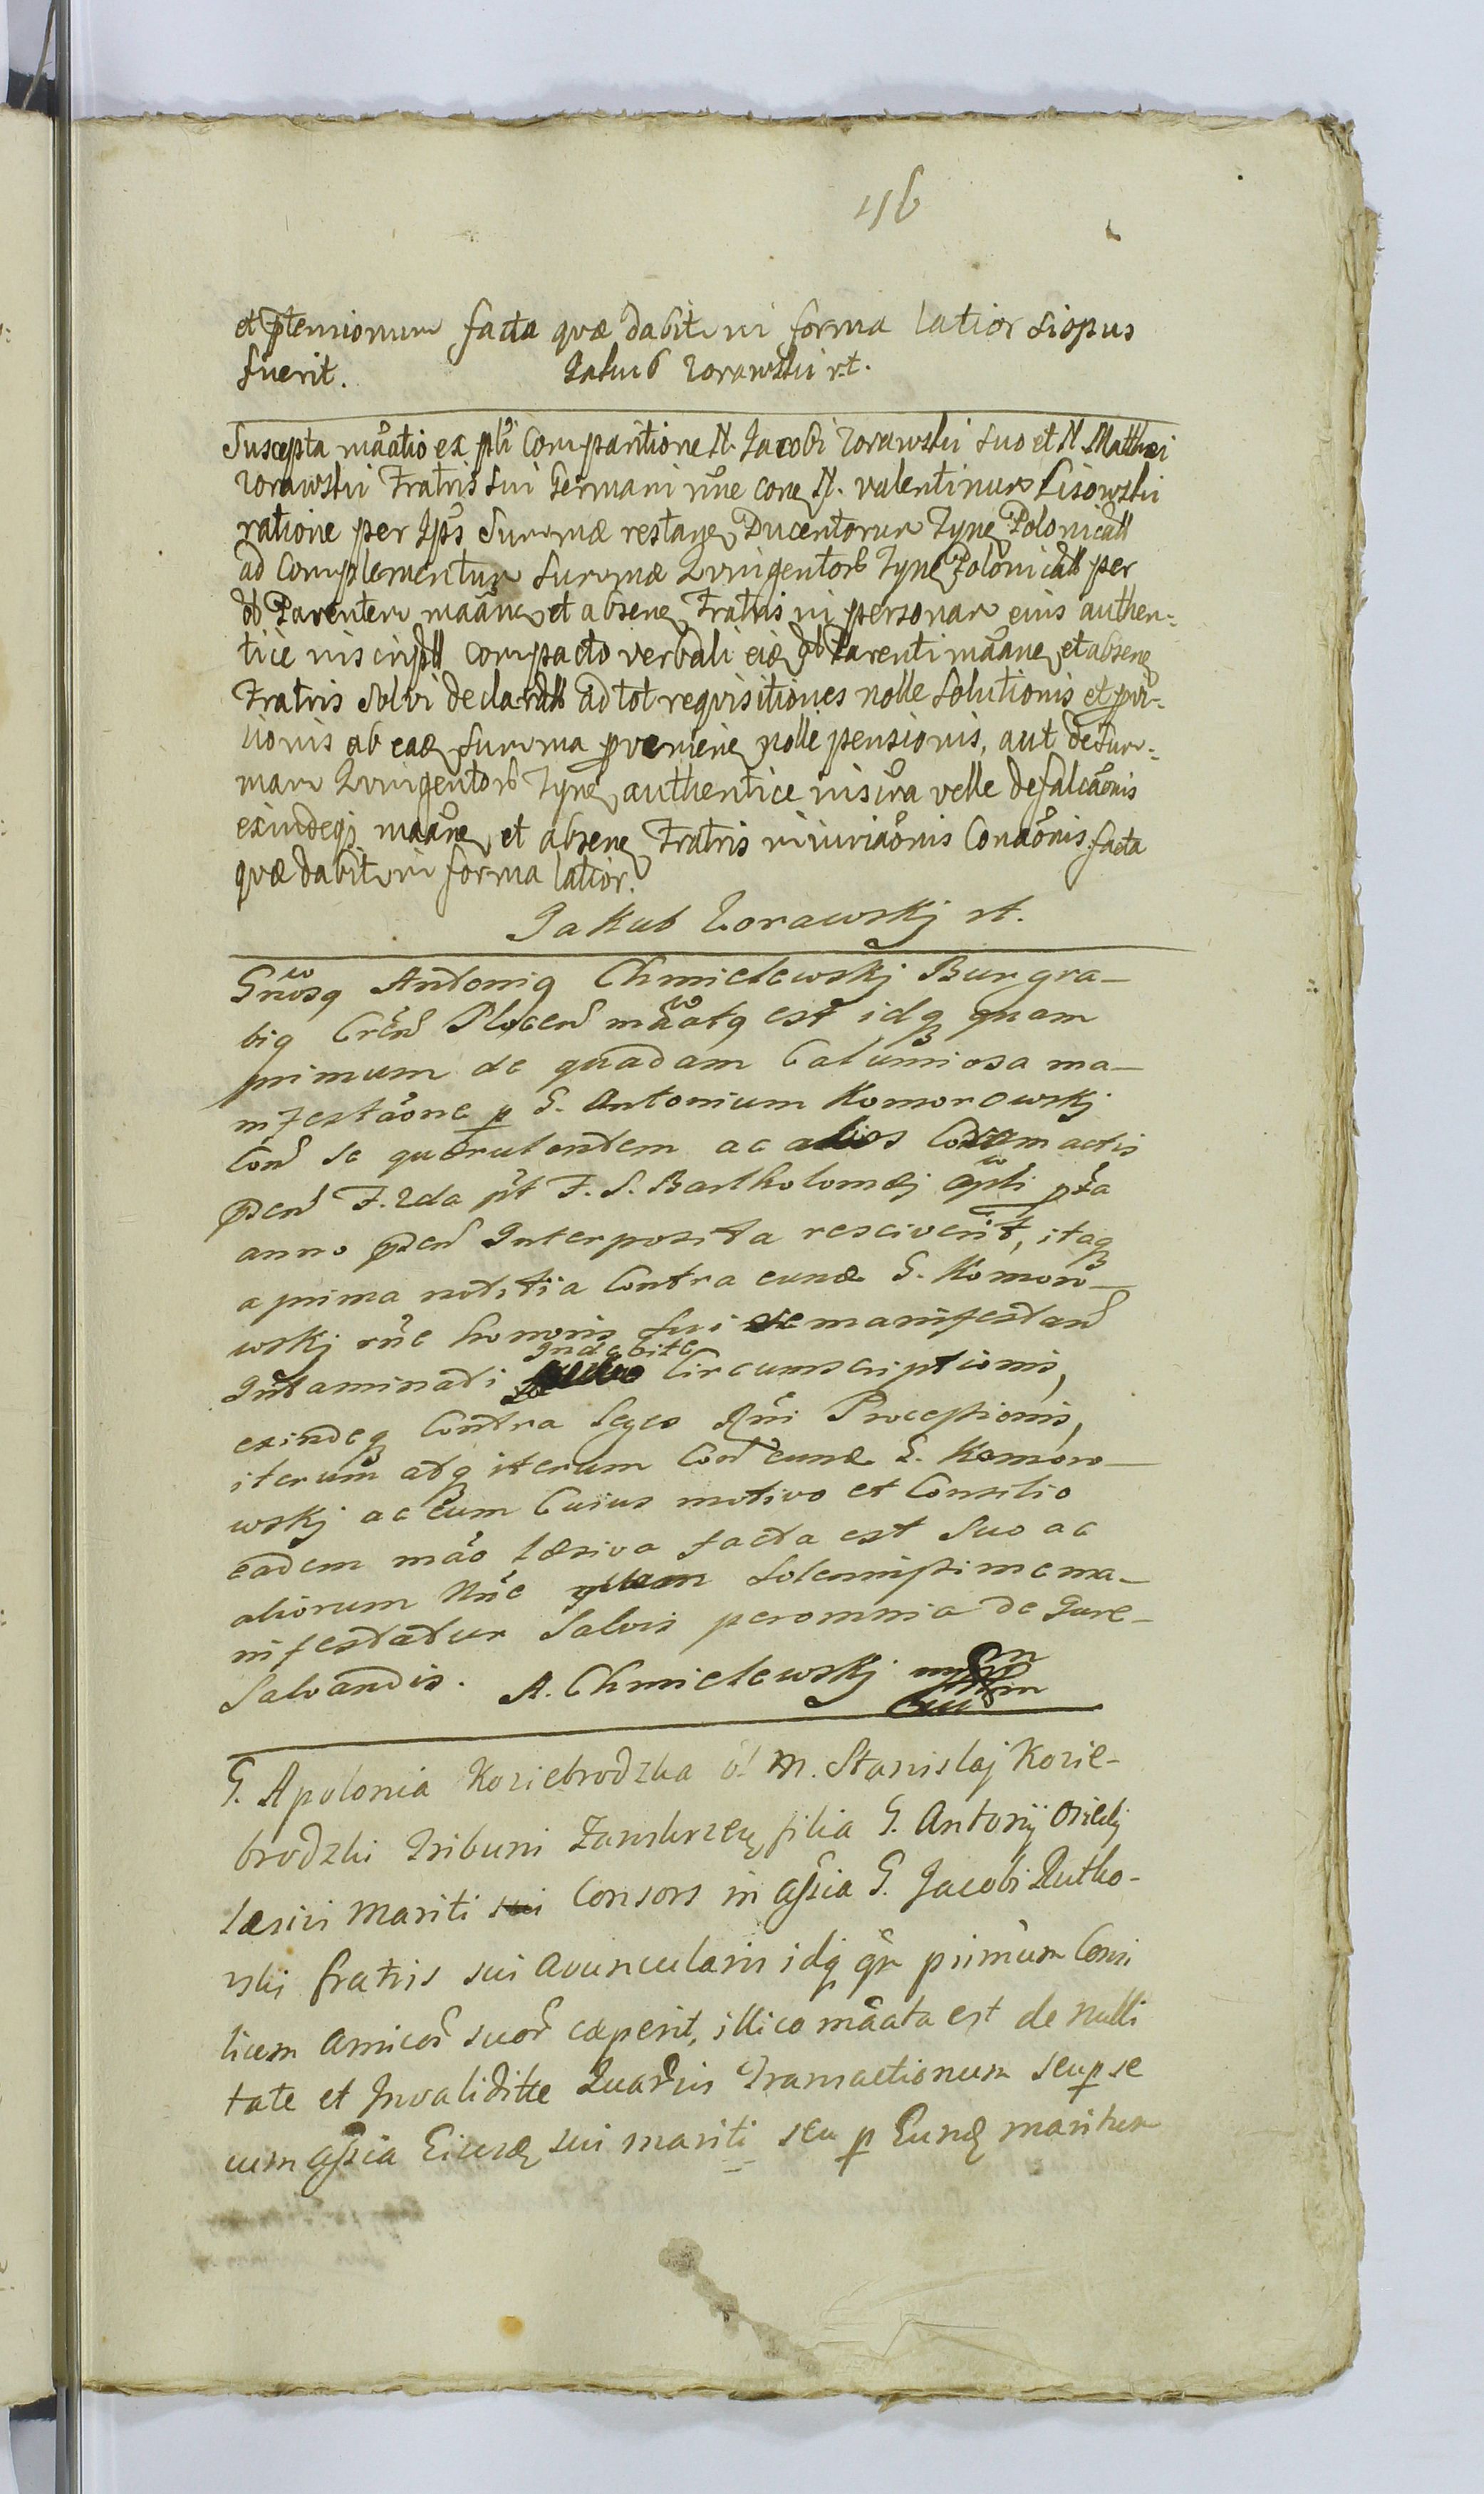 116
et ptensionum facta quæ dabit in forma latior si opus
fuerit. Jakub Zorawski r.t.
Suscepta mãatio ex płi Comparitione N. Jacobi Zorawski suo et N. Matthæi
Zorawski Fratris sui Germani nõne cone N. valentinum Lisowski
ratione per Ips Summæ restane Ducentorum Tyne Polonicall
ad Complementum summæ Quingentorb Tyne Polonicall per
ob Parentem mãane et absene Fratris in personam eius authen=
tice inscriptll compacto verbali eiq ob Parenti mãane et absene
Fratris solvi declarall ad tot requisitiones nolle solutionis et pvi=
sionis ab eaq summa pveniene nolle pensionis, aut de sum=
mam Quingentorb Tyne authentice inscra velle defalcãonis
exindeq mãane et absene Fratris iniuriãonis Conaõnis facta
quæ dabit in forma latior.
Jakub Zorawskj rt.
Gnosq Antoniq Chmielewskj Burgra-
biq Cren Plocen mãatq est idq quam
primum de quadam Calumiosa ma-
nifestãone p G. Antonium Komorowskj
Con se querulantem ac alios Coram actis
pden F. 2da pt F. S. Bartholomæj apli pta
anno pden Interposita resciverit, itaq
a prima notitia Contra eund G. Komoro-
wskj rne honoris sui se manifestand
Intaminati Indebite Circumscriptionis,
exindeq Contra leges Rni Processionis,
iterum atq iterum Con eund G. Komoro-
wskj ac eum Cuius motivo et Consilio
eadem mão læsiva facta est suo ac
aliorum Nne solennissime ma-
nifestatur Salvis peromnia de Jure-
Salvandis. A. Chmielewskj
G. Apolonia Koziebrodzka ol M. Stanislaj Kozie-
brodzki Tribuni Zawkrzen filia G. Antonij
læsivi mariti sui Consors in assia G. Jacobi Rutko-
wski fratris sui avuncularis idq qm primum Consi
lium amicor suor cæperit, illico mãata est de nulli
tate et Invaliditte Quarvis Transactionum seu p se
cum assia Eiusd sui mariti seu p Eund maritum